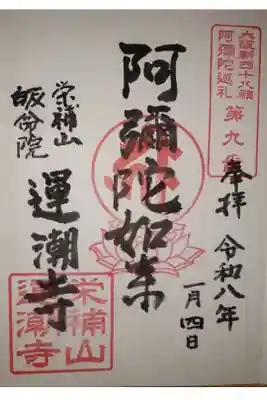 大阪新四十八願
阿彌陀巡礼
第九番
奉拝
令和八年
一月四日
阿彌陀如来
栄補山
運潮寺
栄補山
運潮寺